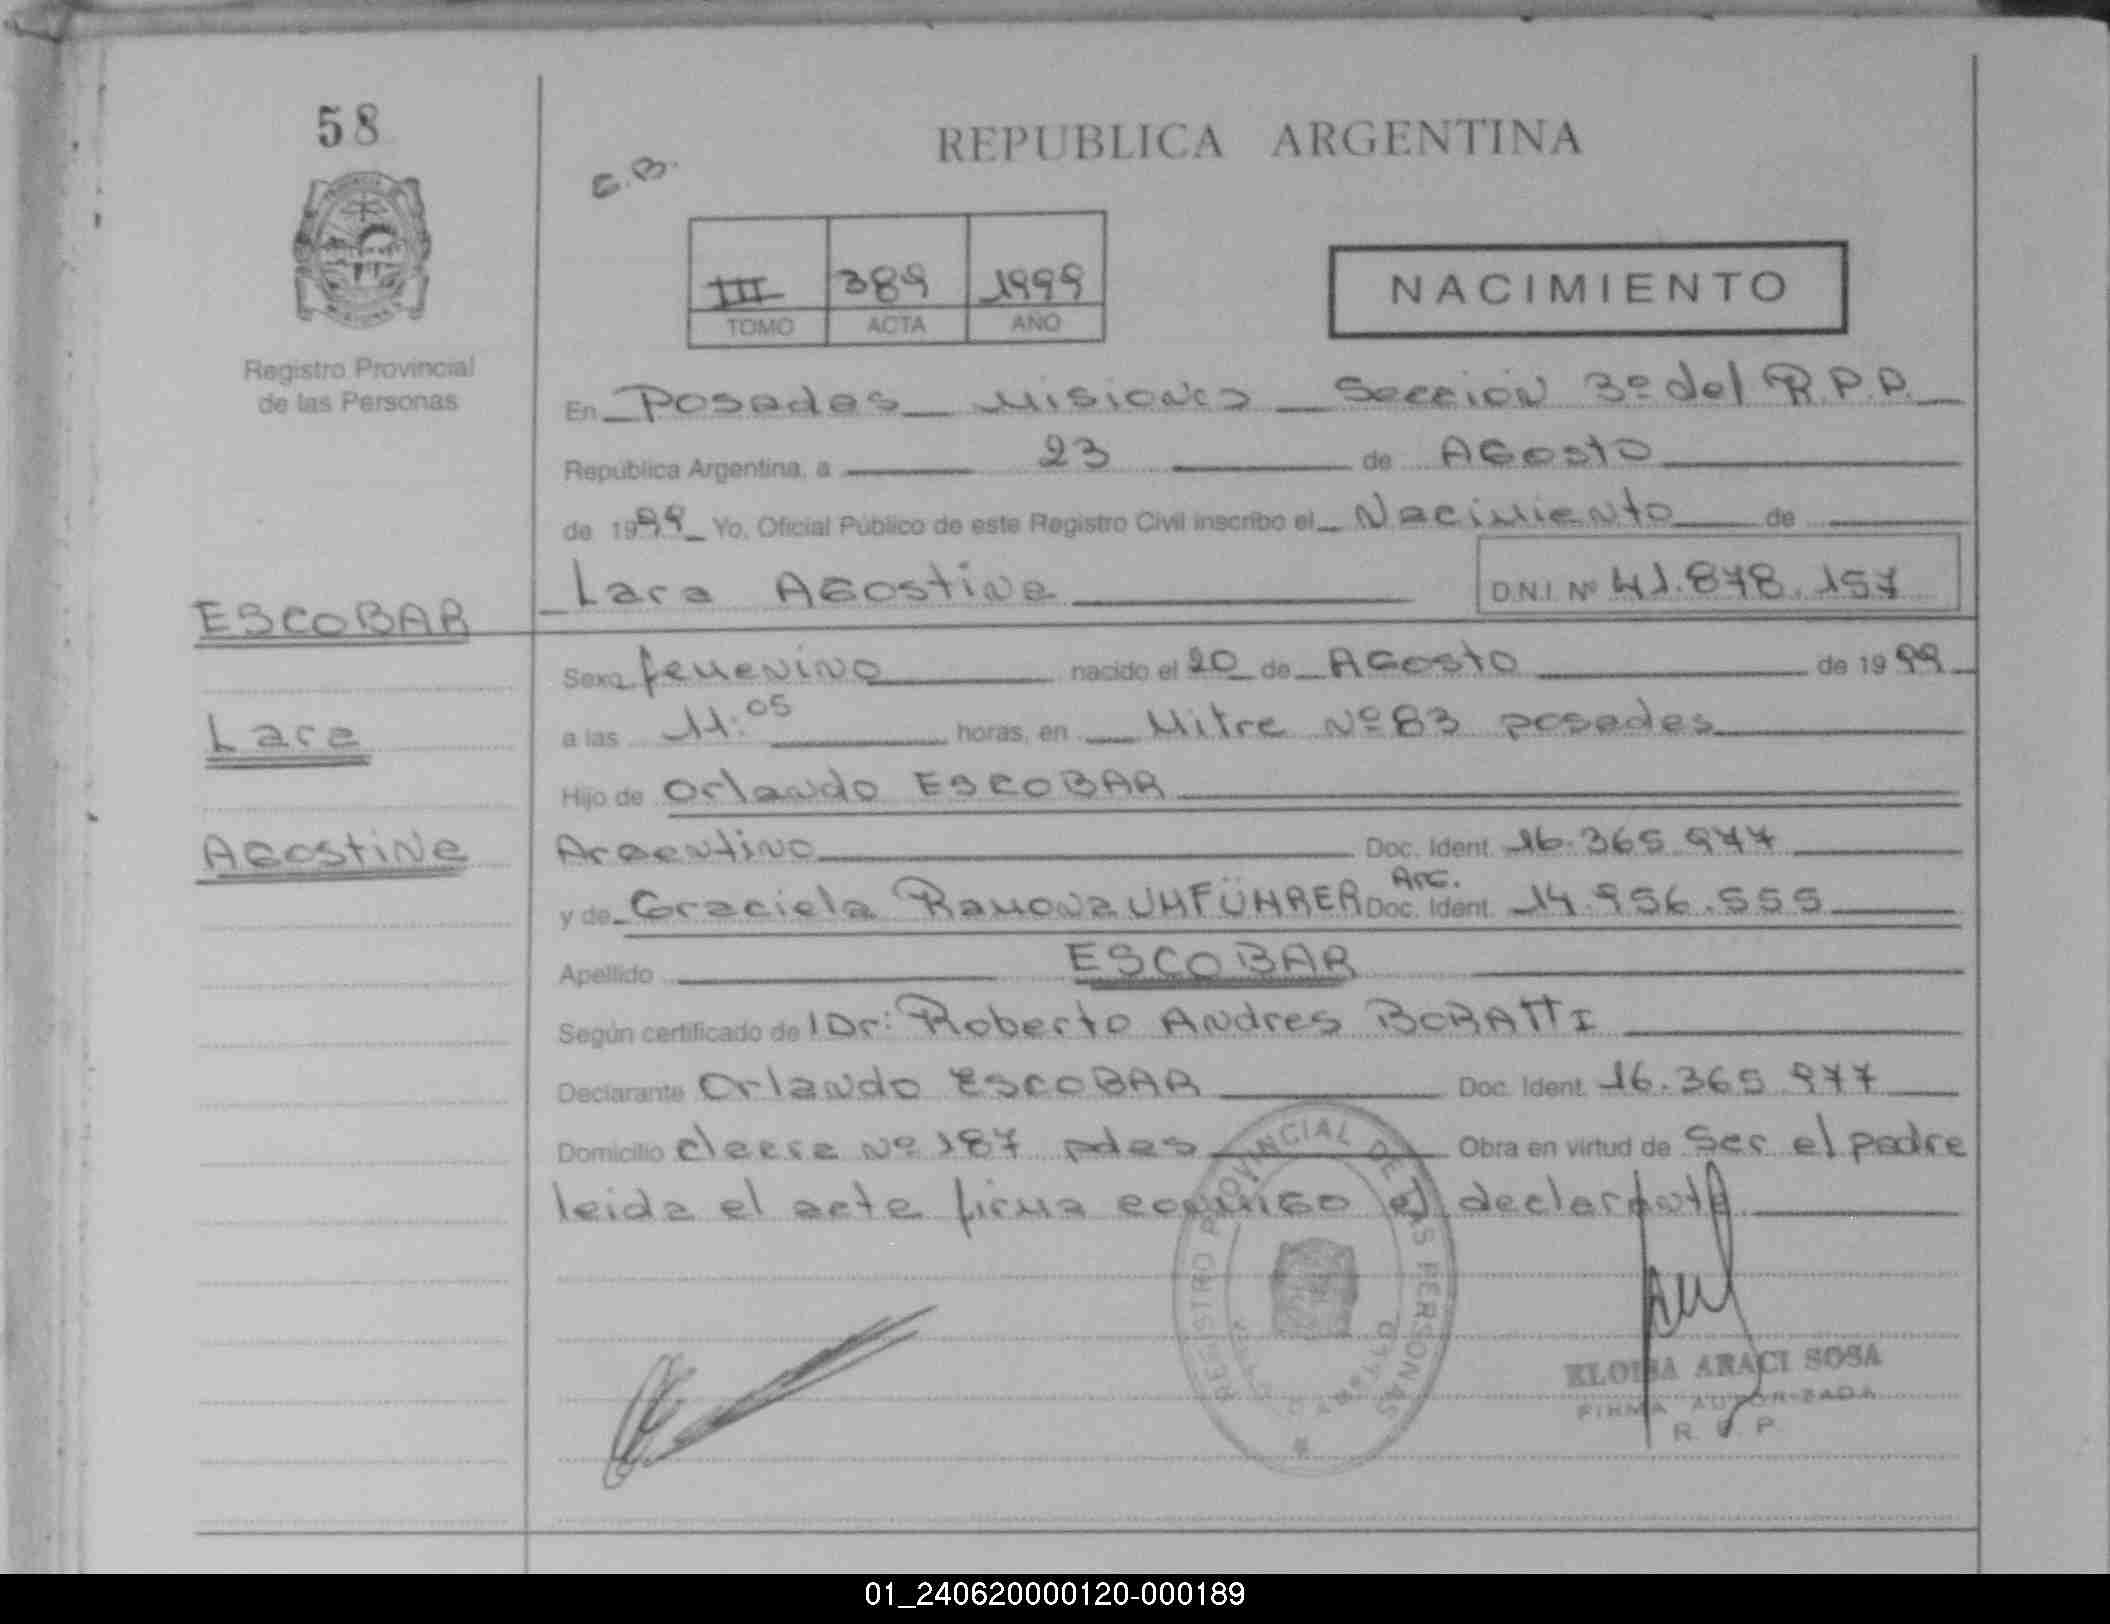 58
REPUBLICA ARGENTINA
G.B.
III 389 1999
TOMO ACTA AÑO
NACIMIENTO
Registro Provincial
de las Personas
En Posadas Misiones Sección 3º del R.P.P.
República Argentina, a 23 de Agosto
de 1999 Yo, Oficial Público de este Registro Civil inscribo el Nacimiento de
Lara Agostina D.N.I. Nº 41.878.157
ESCOBAR
Lara
Agostina
Sexo femenino nacido el 20 de Agosto de 1999
a las 11:05 horas, en Mitre Nº 83 posadas
Hijo de Orlando ESCOBAR
Argentino Doc. Ident. 16.365.977
y de Graciela Ramona UMFÜHRER Arg. Doc. Ident. 14.956.555
Apellido ESCOBAR
Según certificado de Dr: Roberto Andres BORATTI
Declarante Orlando ESCOBAR Doc. Ident. 16.365.977
Domicilio Nº 187 pdas Obra en virtud de Ser el padre
leida el acta firma conmigo el declarante
REGISTRO PROVINCIAL DE LAS PERSONAS
ELOISA ARACI SOSA
FIRMA AUTORIZADA
R. P. P.
01_240620000120-000189